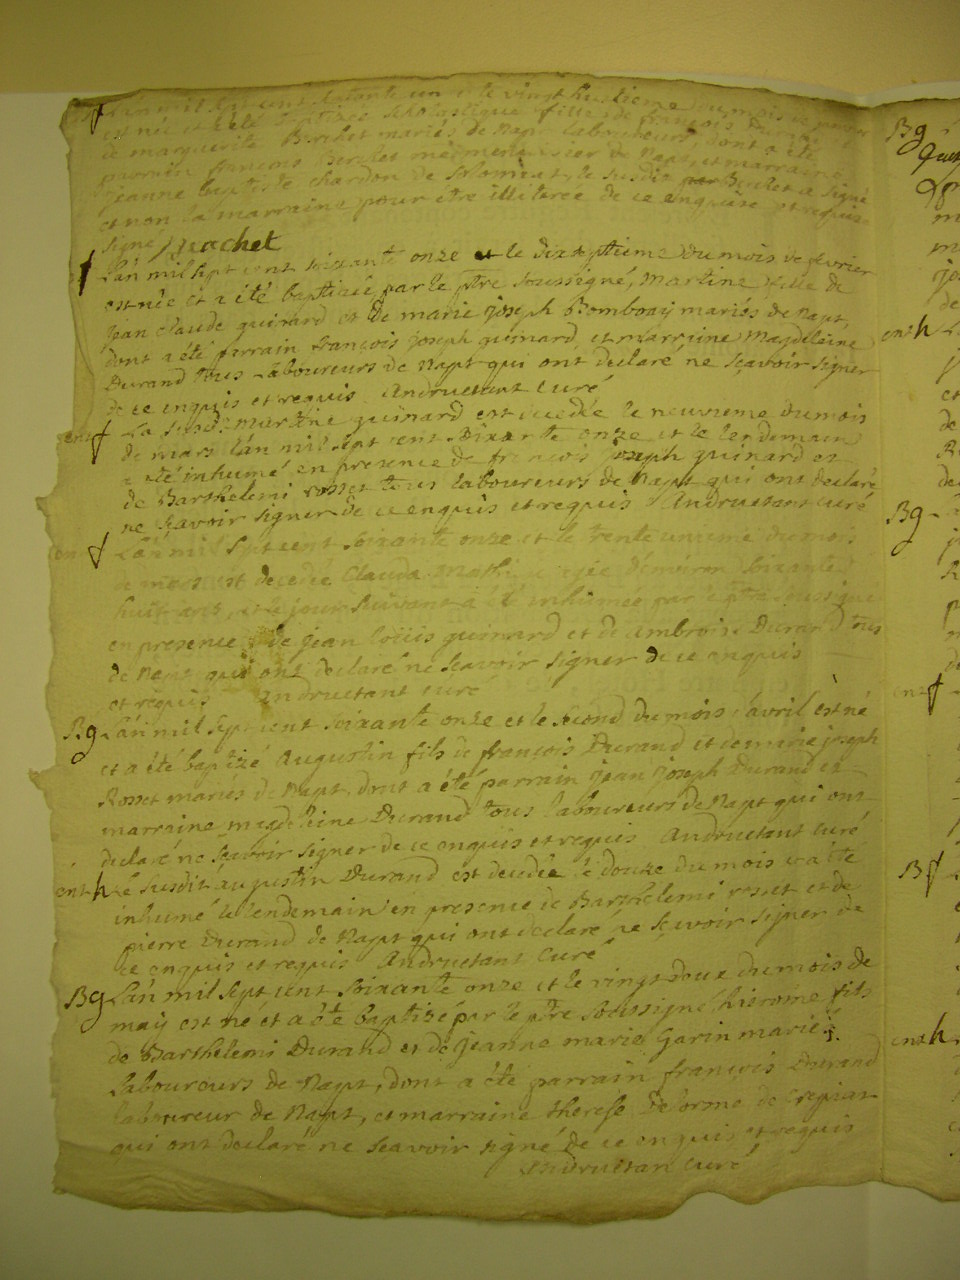 f L'an mil sept cent soixante un et le vingt huitieme du mois de janvier
est née et a été baptisée Scholastique fille de françois Durand et
de marguerite Berchet mariés de Napt laboureurs, dont a été
parrain françois Berchet menuisier de Napt, et marraine
jeanne baptiste chardon de Solomiat, le susdit Berchet a signé
et non la marraine pour être illiterée de ce enquise et requise
signé
f L'an mil sept cent soixante onze et le dixseptieme du mois de fevrier
est née et a été baptisée par le ptre soussigné, Martine fille de
jean claude guinard et de marie joseph Bombois mariés de Napt,
dont a été parrain françois joseph guinard, et marraine Magdelaine
Durand tous laboureurs de Napt qui ont declaré ne sçavoir signer
de ce enquis et requis. Andruetant Curé
ent f La susd. martine guinard est decedée le neuvieme du mois
de mars l'an mil sept cent soixante onze et le lendemain
a été inhumé en presence de françois joseph guinard et
de Barthelemi rosset tous laboureurs de Napt qui ont declaré
ne sçavoir signer de ce enquis et requis Andruetant curé
en f L'an mil sept cent soixante onze et le trente unieme du mois
de mars est decedée Clauda agée d'environ soixante
huit ans, et le jour suivant a été inhumée par le ptre soussigné
en presence de jean loüis guinard et de ambroise Durand tous
de Napt qui ont declaré ne sçavoir signer de ce enquis
et requis Andruetant curé
Bg L'an mil sept cent soixante onze et le second du mois d'avril est né
et a été baptizé Augustin fils de françois Durand et de marie joseph
Rosset mariés de Napt, dont a été parrain jean joseph Durand et
marraine magdeleine Durand tous laboureurs de Napt qui ont
declaré ne sçavoir signer de ce enquis et requis Andruetant curé
ent h Le susdit augustin Durand est decedé le douze du mois et a été
inhumé le lendemain en presence de Barthelemi rosset et de
pierre Durand de Napt qui ont declaré ne sçavoir signer de
ce enquis et requis Andruetant Curé
Bg L'an mil sept cent soixante onze et le vingt deux du mois de
maÿ est né et a été baptizé par le ptre soussigné hierome fils
de Barthelemi Durand et de jeanne marie Garin mariés
laboureurs de Napt, dont a été parrain françois Durand
laboureur de Napt, et marraine therese Delorme de Crepiat
qui ont declaré ne sçavoir signé de ce enquis et requis
Andruetan Curé